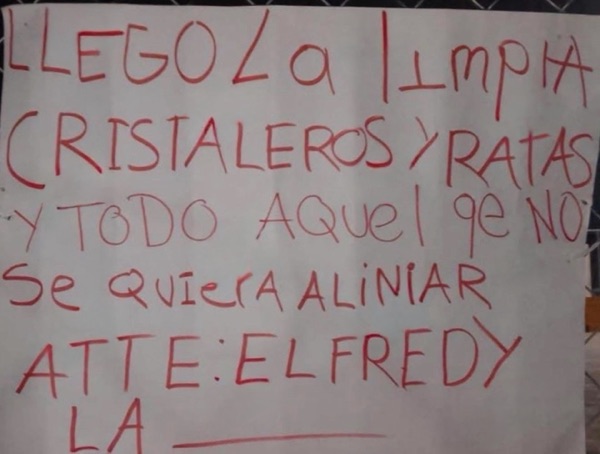 LLEGO La lImpIA
CRISTALEROS Y RATAS
Y TODO AQuel qe NO
Se QUIerA ALiNIAR
ATTE: EL FREDY
LA ______